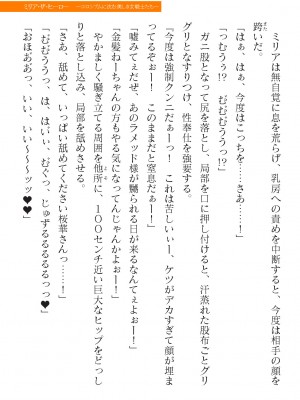 ミリア・ザ・ヒーロー
　ミリアは無自覚に息を荒らげ、乳房への責めを中断すると、今度は相手の顔を
跨いだ。
「はぁ、はぁ、今度はこっちを……さあ…！」
「っむうぅ!?　むむむううぅっ!?」
　ガニ股となって尻を落とし、局部を口に押し付けると、汗蒸れた股布ごとグリ
グリとなすりつけ、性奉仕を強要する。
「今度は強制クンニだぁーっ！　これは苦しいぃー、ケツがデカすぎて顔が埋ま
ってるぞぉー！　このままだと窒息だぁーっ！」
「嘘みてぇだぜ、あのラメッド様が嬲られる日が来るなんてぇよぉー！」
「金髪ねーちゃんの方もやる気になってんじゃんかよぉー！」
　やかましく騒ぎ立てる周囲を他所に、１００センチ近い巨大なヒップをどっし
りと落とし込み、局部を舐めさせる。
「さあ、舐めて、いっぱい舐めてください桜華さん……！」
「むむううっ、は、はいぃ、むぐっ、じゅずるるるるっっ♥」
「おほおおっ、いい、いい〜〜〜ッッ♥♥」